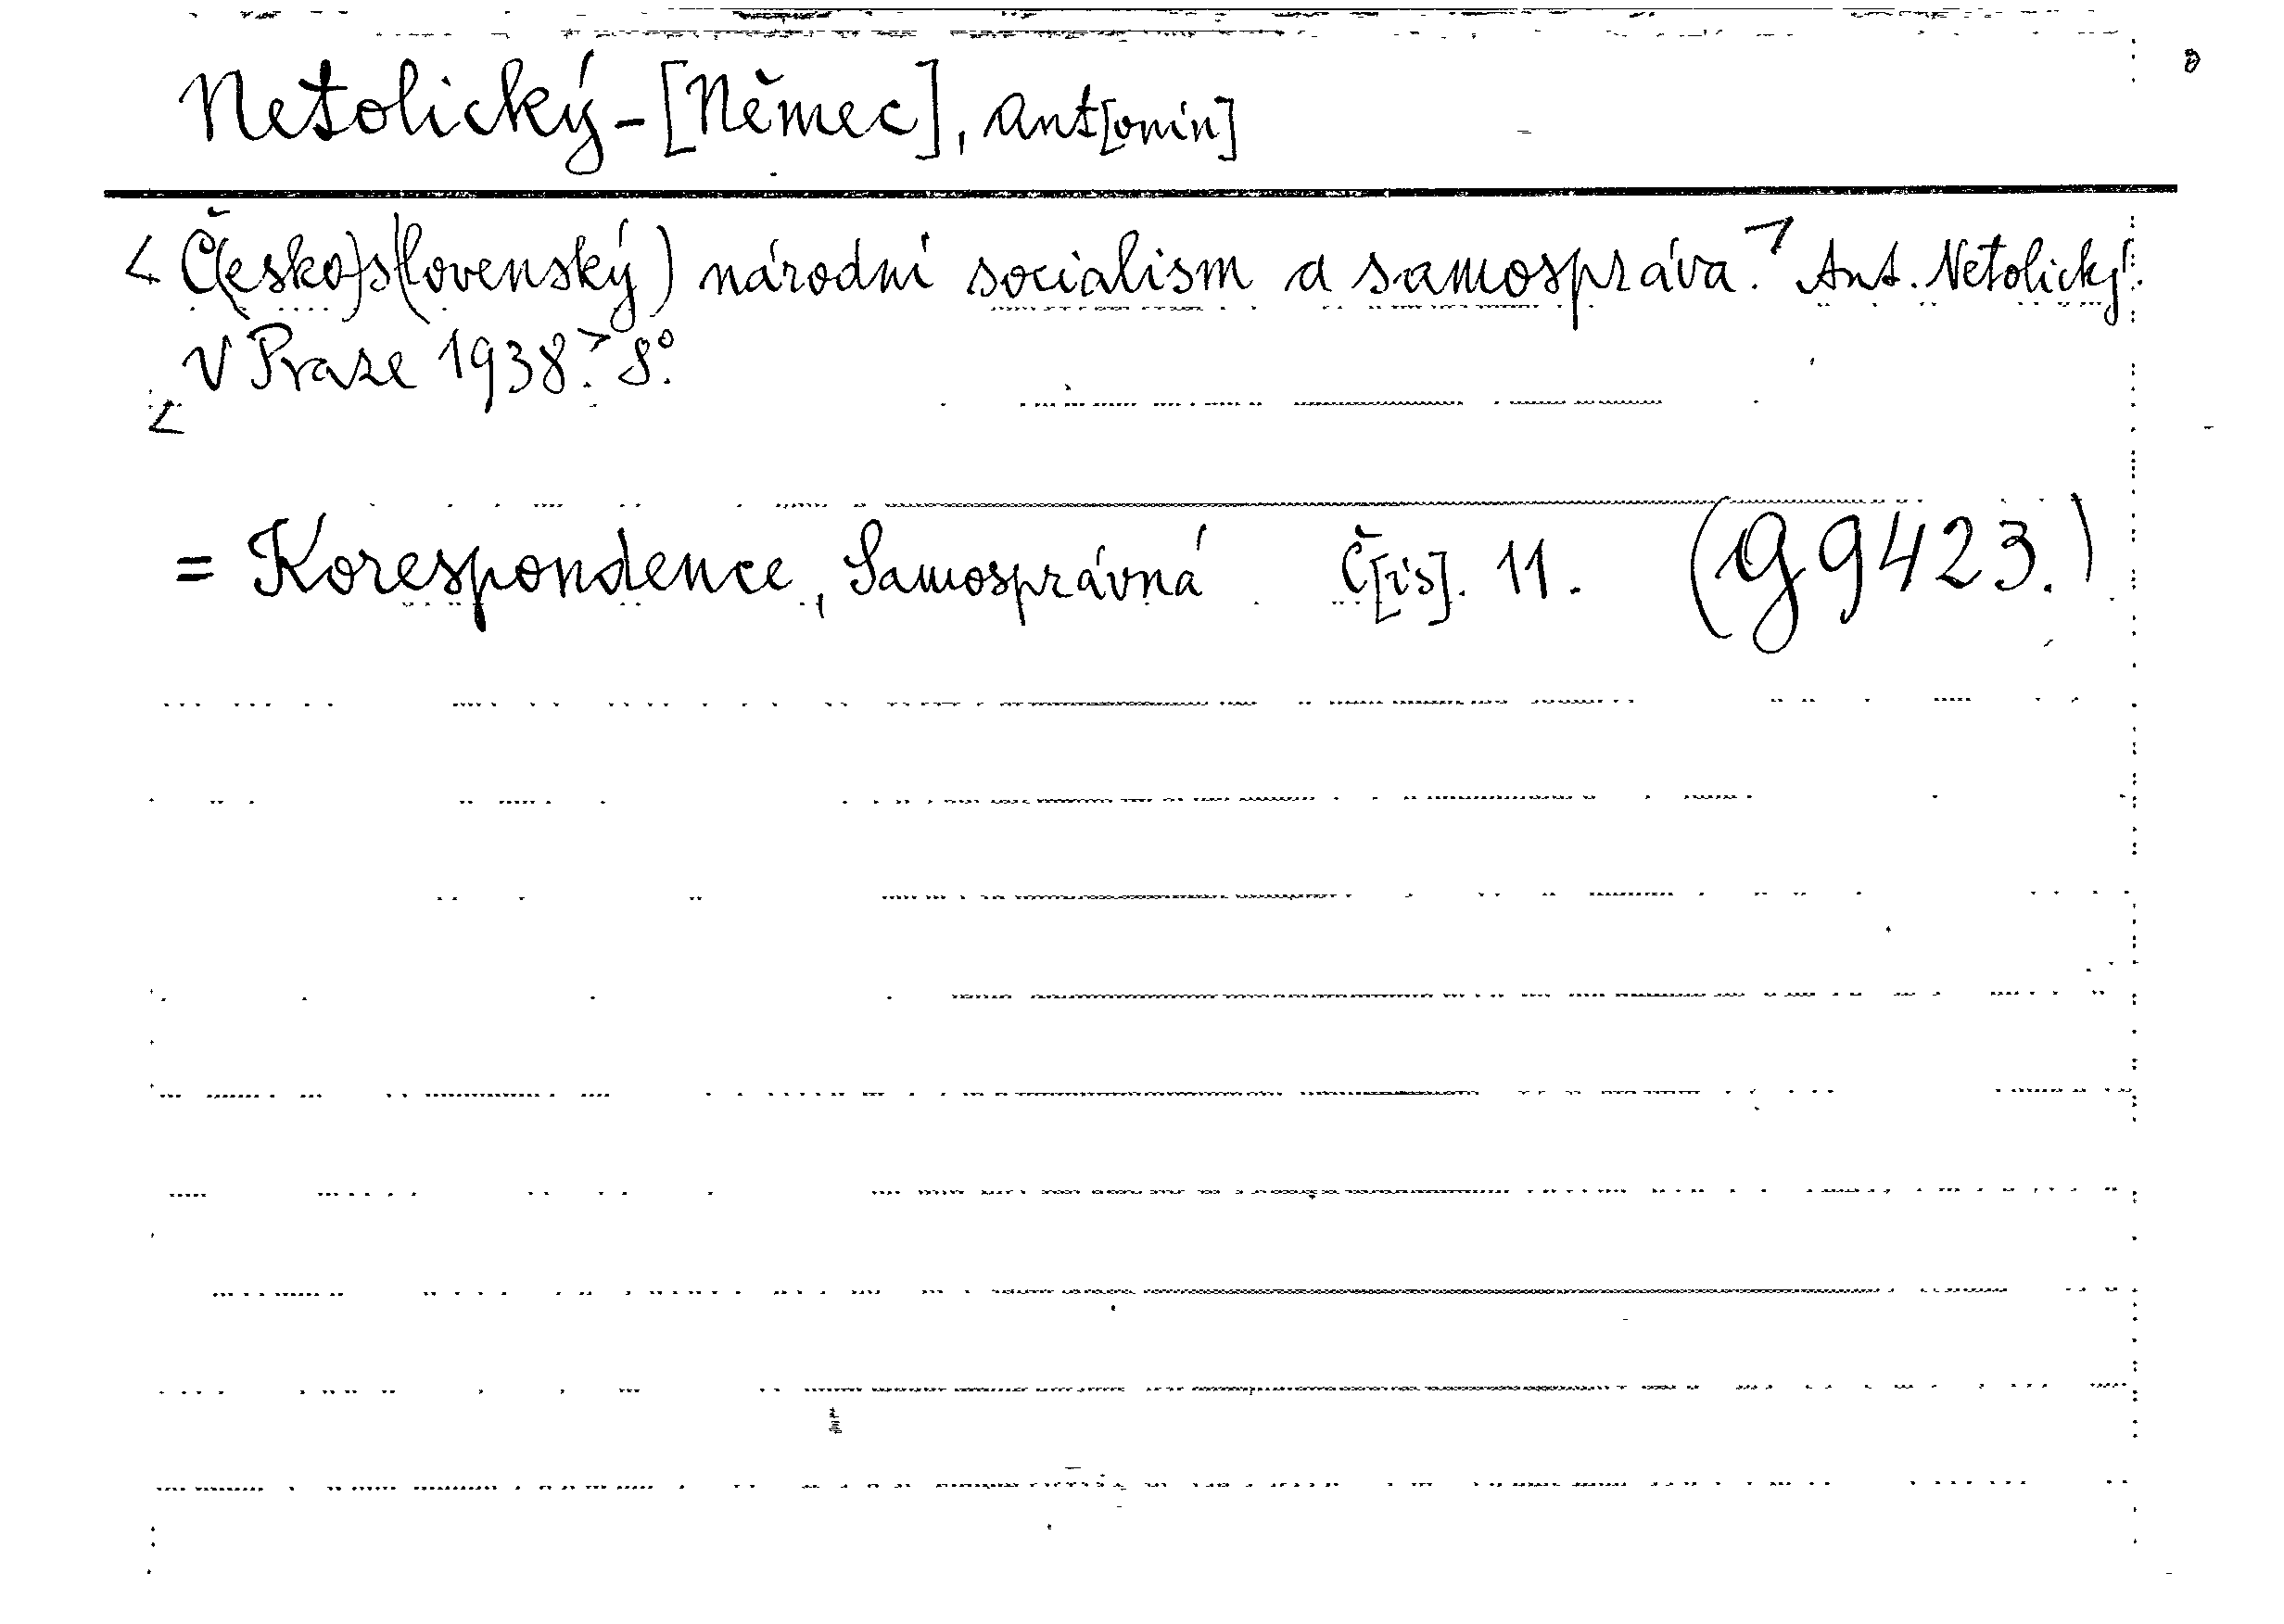 Netolický-[Němec], Ant[onín]
<Č(esko)s(lovenský) národní socialism a samospráva.> Ant. Netolický.
<V Praze 1938.> 8°.
= Korespondence, Samosprávná Č[ís]. 11. (G 9423.)